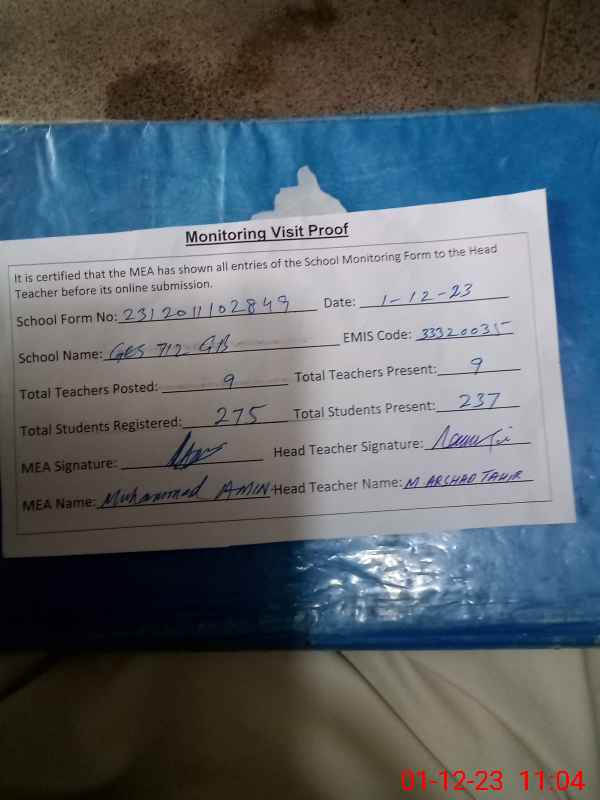 Monitoring Visit Proof
It is certified that the MEA has shown all entries of the School Monitoring Form to the Head
Teacher before its online submission.
School Form No: 231201102849 Date: 1-12-23
School Name: GES 712 GB EMIS Code: 33320035
Total Teachers Posted: 9 Total Teachers Present: 9
Total Students Registered: 275 Total Students Present: 237
MEA Signature: Head Teacher Signature:
MEA Name: Muhammad AMIN Head Teacher Name: M ARSHAD TAHIR
01-12-23 11:04